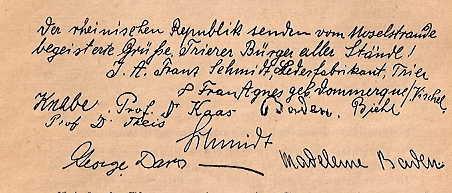 Der rheinischen Republik senden vom Moselstrande
begeisterte Grüße, Trierer Bürger aller Stände!
J. A. Franz Schmidt, Lederfabrikant, Trier
& Frau Agnes geb. Dommergue/Kichel
Knabe Prof. Dr Kaas Baden, Biehl
Prof Dr. Theis
Schmidt
George Davis Madeleine Baden